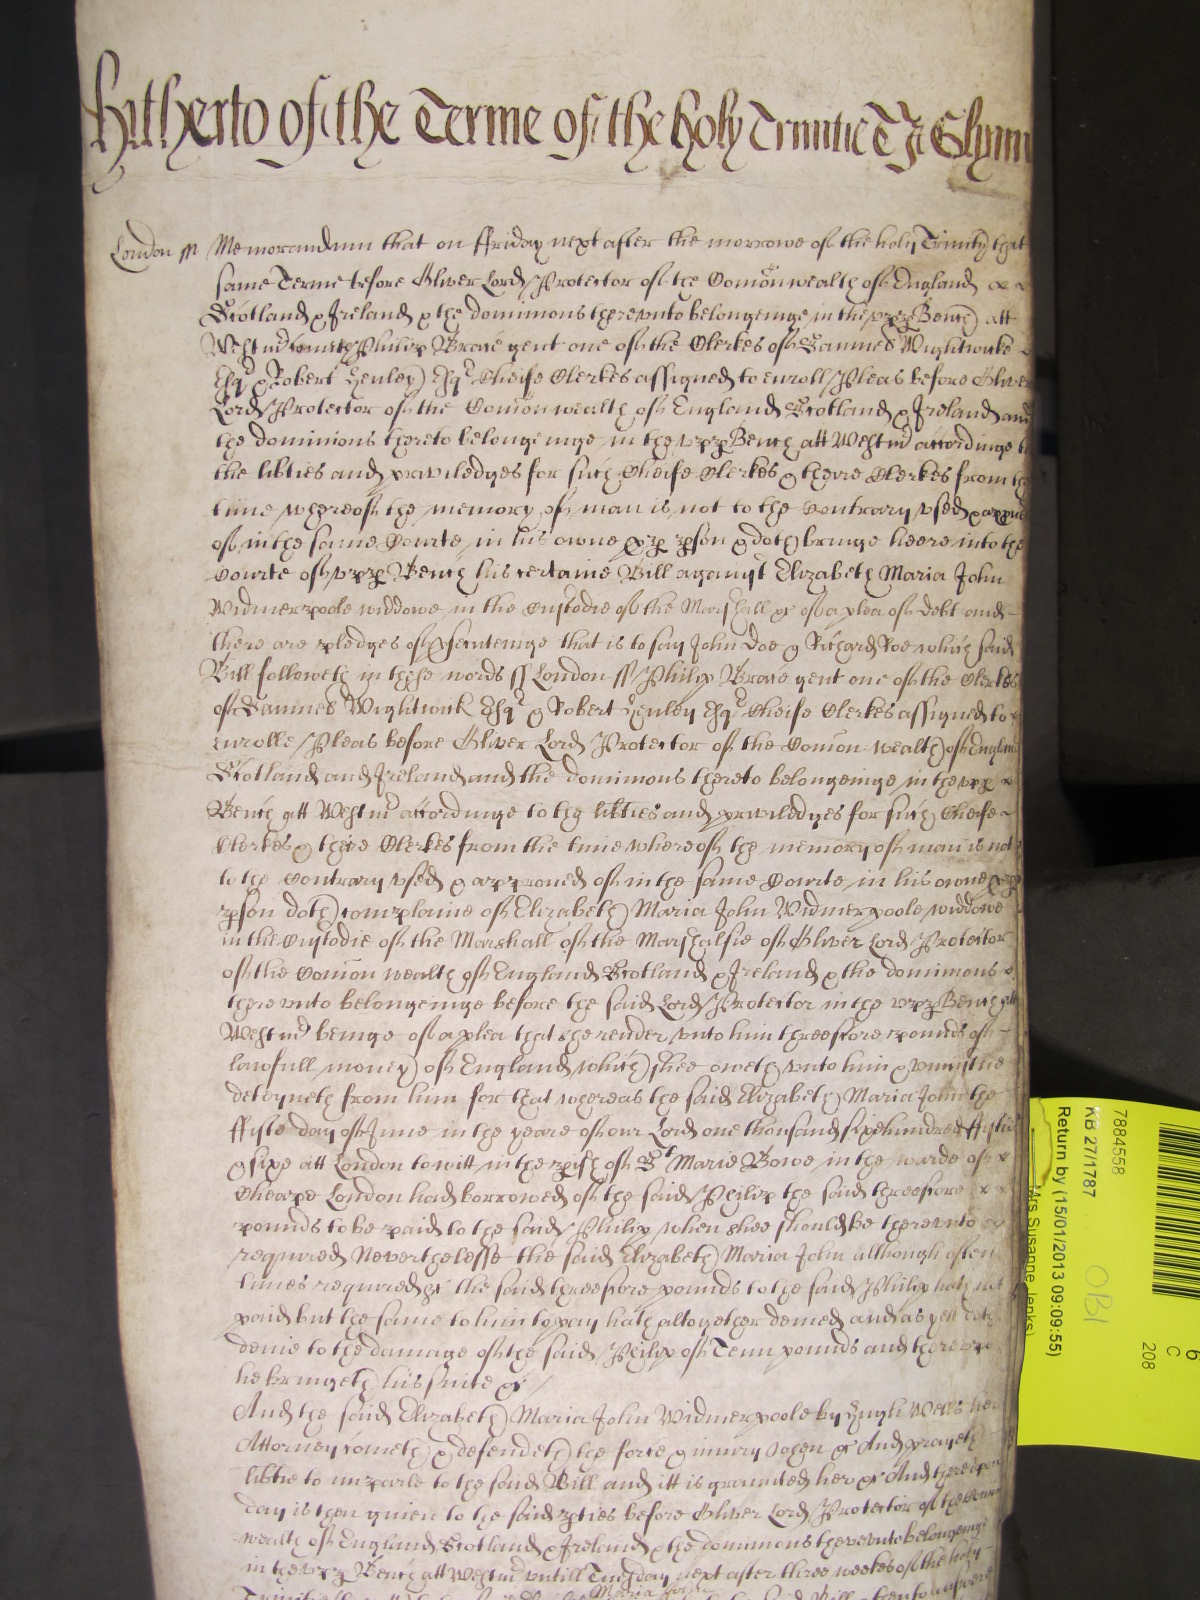 hitherto of the Terme of the holy Trinitie Glynn
London ss Memorandum that on ffriday next after the morrowe of the holy Trinity that
same Terme before Oliver Lord Protector of the Comonwealth of England
Scotland & Ireland & the dominions thereunto belongeinge in the upp Bench att
Westmr cometh Philip gent one of the Clerkes of Samuel Wightwicke
Esqr & Robert Henley Esqr Cheife Clerkes assigned to enroll Pleas before Oliver
Lord Protector of the Comonwealth of England Scotland & Ireland and
the dominions thereto belongeinge in the upp Bench att Westmr accordinge to
the libties and priviledges for such Cheife Clerkes & theire Clerkes from the
time whereof the memory of man is not to the contrary used &
of in the same Courte in his owne pson & doth bringe heere into the
Courte of upp Bench his certaine Bill against Elizabeth Maria John
Widmerpoole widdowe in the Custodie of the Marshall &c of a plea of debt and
there are pledges of psecuteinge that is to say John Doe & Richard Roe which said
Bill followeth in these words ss London ss Philip gent one of the Clerkes
of Samuel Wightwick Esqr & Robert Henley Esqr Cheife Clerkes assigned to
enrolle Pleas before Oliver Lord Protector of the Comon wealth of England
Scotland and Ireland and the dominions thereto belongeinge in the upp
Bench att Westmr accordinge to the libties and priviledges for such Cheife
Clerkes & theire Clerkes from the time whereof the memory of man is not
to the Contrary used & approued of in the same Courte in his owne
pson doth complaine of Elizabeth Maria John Widmerpoole widdowe
in the Custodie of the Marshall of the Marshalsie of Oliver Lord Protector
of the Comon wealth of England Scotland & Ireland & the dominions
thereunto belongeinge before the said Lord Protector in the upp Bench att
Westmr beinge of a plea that she render unto him threescore pounds of
lawfull money of England which shee oweth unto him & uniustlie
deteyneth from him for that whereas the said Elizabeth Maria John the
ffifte day of June in the yeare of our Lord one thousand sixe hundred ffiftie
& sixe att London to witt in the pish of St Marie Bowe in the warde of
Cheape London had borrowed of the said Philip the said threescore
pounds to be paid to the said Philip when shee should be thereunto
required Neverthelesse the said Elizabeth Maria John although often
times required &c the said threescore pounds to the said Philip hath not
paid but the same to him to pay hath altogether denied and as yett doth
denie to the damage of the said Philip of Tenn pounds and thereupon
he bringeth his suite &c
And the said Elizabeth Maria John Widmerpoole by Hugh her
Attorney cometh & defendeth the force & iniury when &c And prayeth
libtie to imparle to the said Bill and itt is graunted her &c And thereupon
day is then giuen to the said pties before Oliver Lord Protector of the Comon
wealth of England Scotland & Ireland & the dominions thereunto belongeinge
in the upp Bench att Westmr untill Tuesday next after three weekes of the holy
Maria John
7884558
KB 27/1787
Return by (15/01/2013 09:09:55)
Mrs Susanne Jenks)
6
C
208